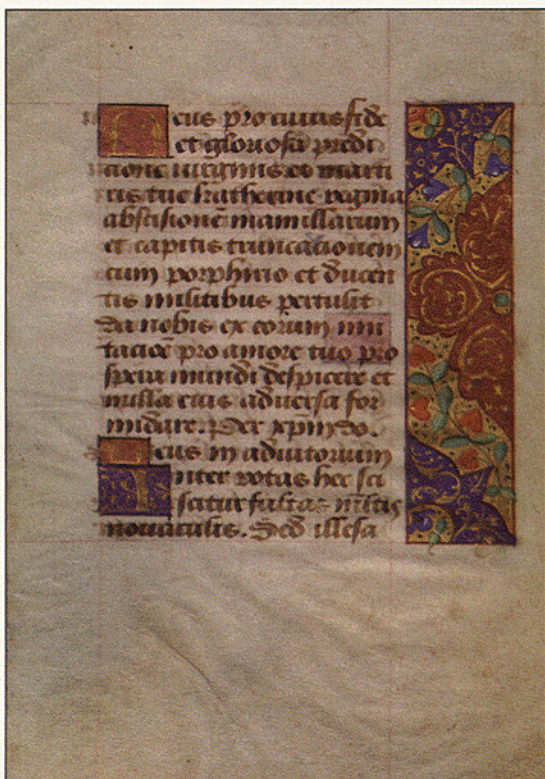 Deus pro cuius fide
et gloriosa predi
cione virginis et marti
ris tue katherine regina
abscisionē mamillarum
et capitis truncationem
cum porphirio et ducen
tis militibus pertulit
Da nobis ex eorum imi
tacioē pro amore tuo pro
spera mundi despicere et
nulla eius adversa for
midare. Per xpm do.
Deus in adiutorium
Inter rotas hec sci
scitur multis
novaculis. Sed illesa